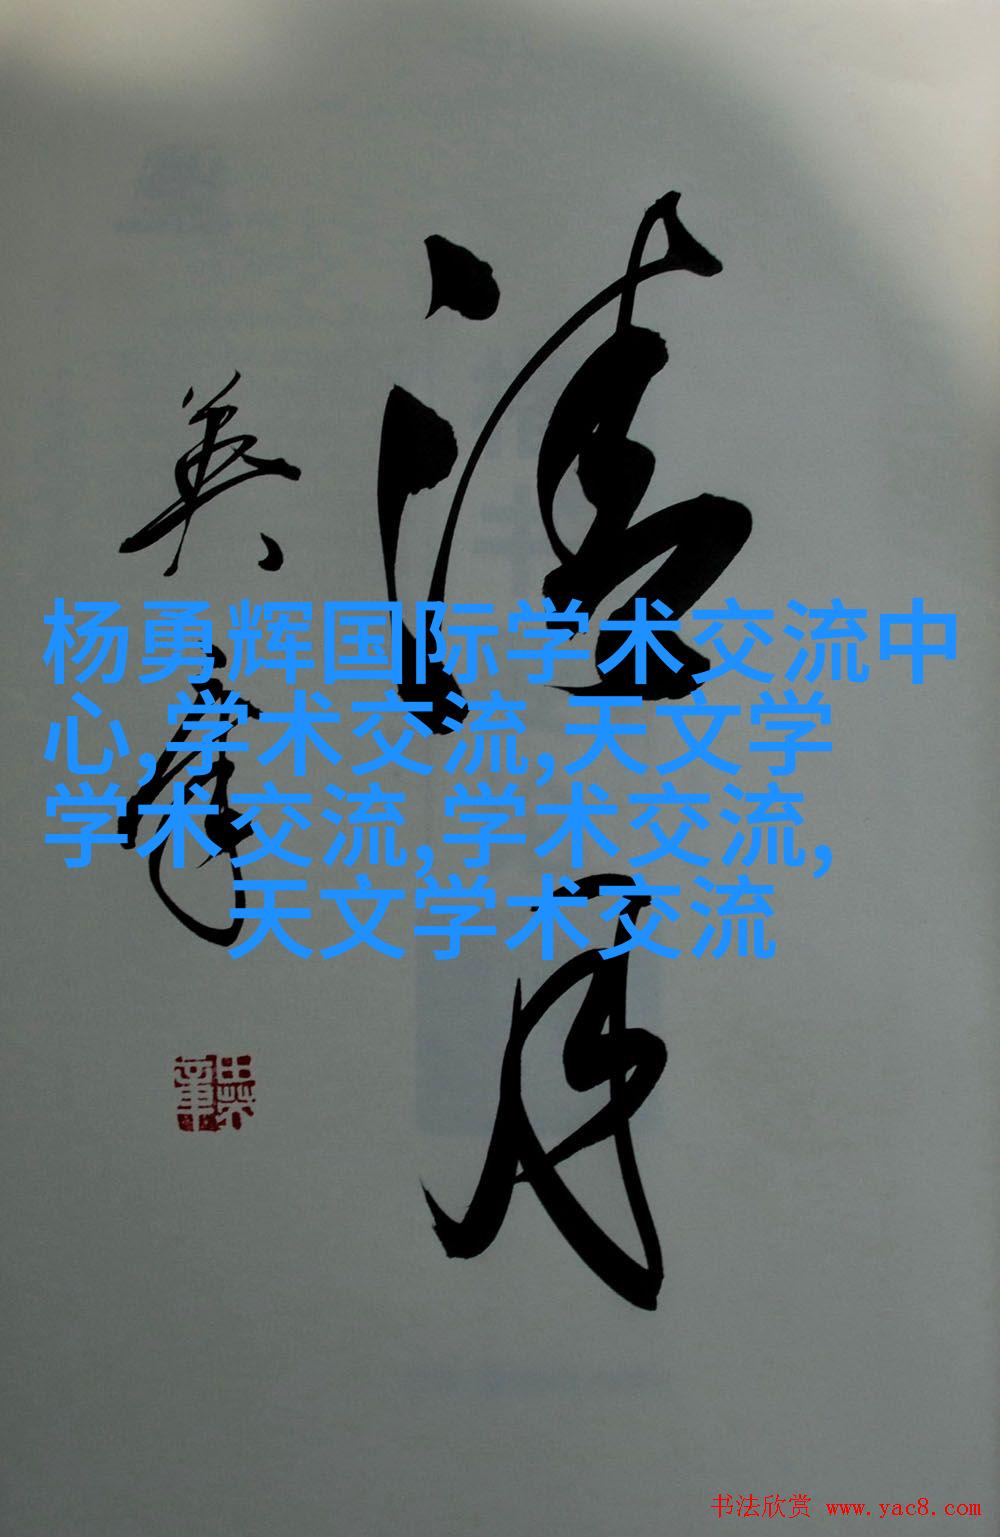 清月
英章
杨勇辉国际学术交流中
心,学术交流,天文学
学术交流,学术交流,
天文学术交流
书法欣赏 www.yac8.com